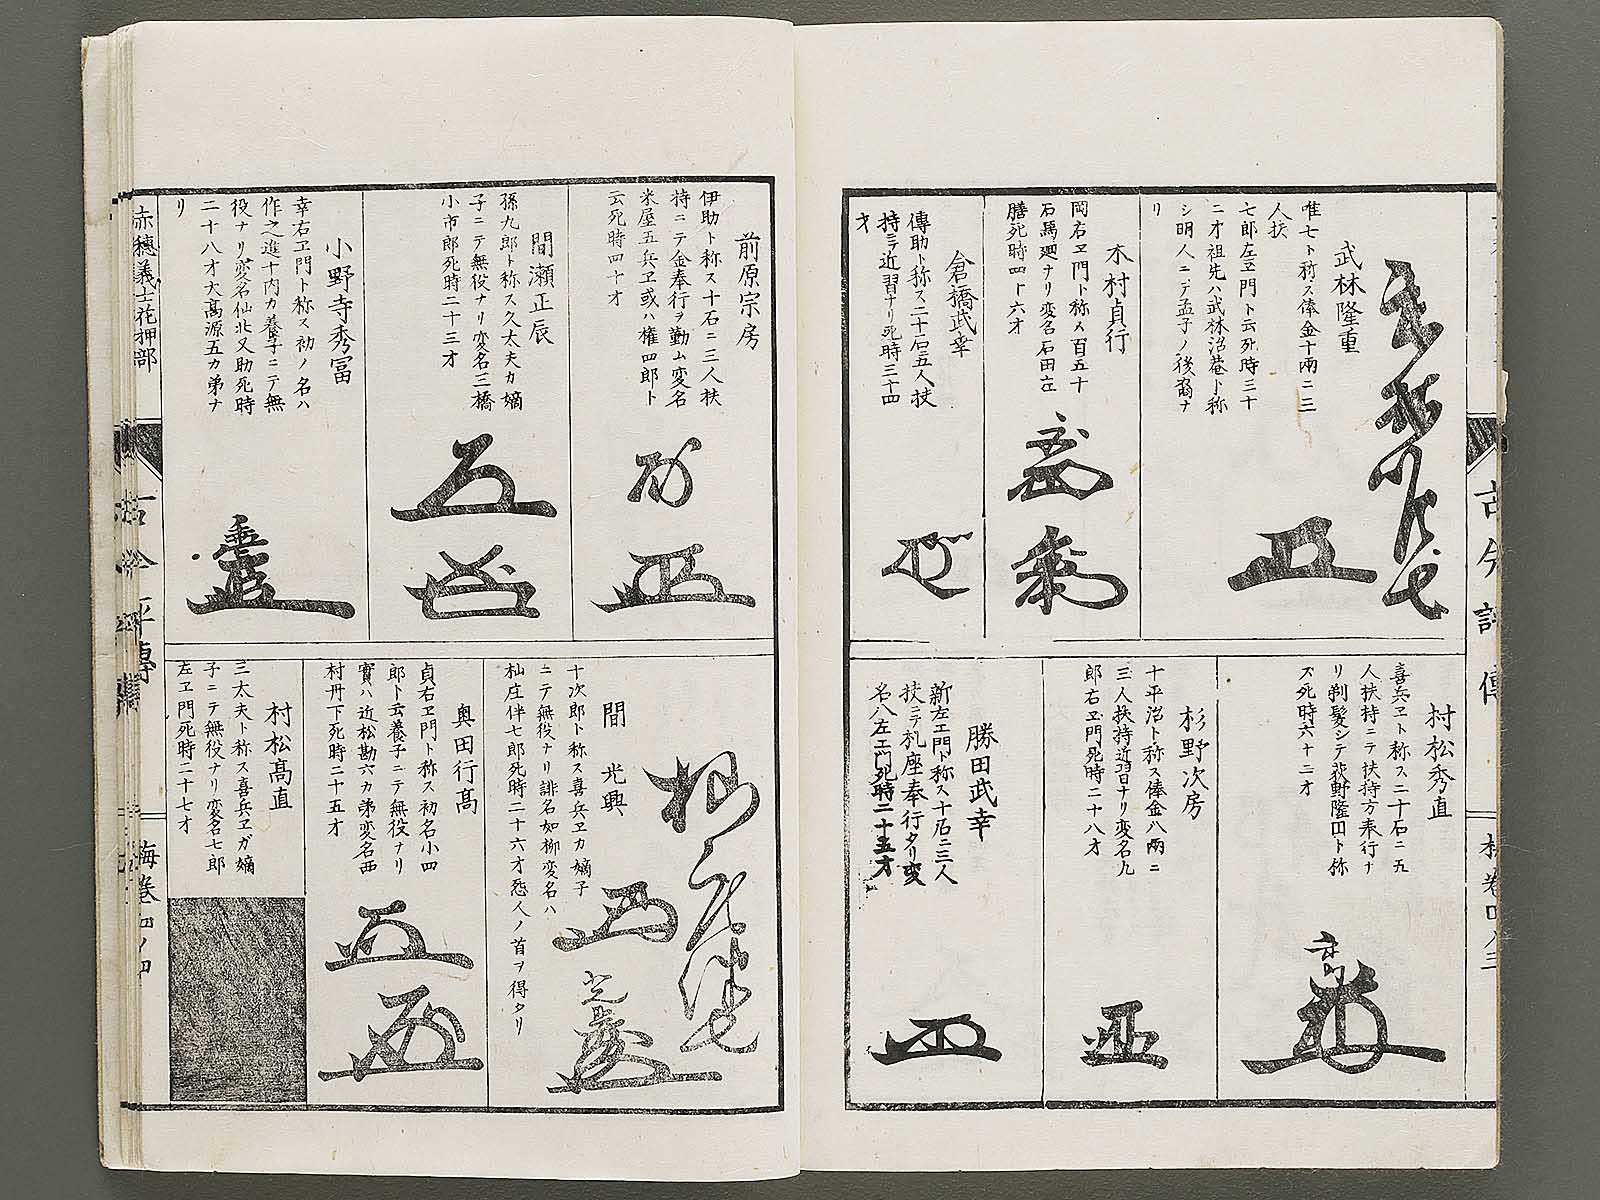 武林隆重
唯七ト称ス俸金十両ニ三
人扶
七郎左ヱ門ト云死時三十
二才祖先ハ武林沼菴ト称
シ明人ニテ孟子ノ後裔ナ
リ
木村貞行
岡右ヱ門ト称ス百五十
石馬廻ナリ変名石田左
膳死時四十六才
倉橋武幸
傳助ト称ス二十石五人扶
持ニテ近習ナリ死時三十四
才
村松秀直
喜兵ヱト称ス二十石ニ五
人扶持ニテ扶持方奉行ナ
リ剃髪シテ荻野隆円ト称
ス死時六十二才
杉野次房
十平治ト称ス俸金八両ニ
三人扶持近習ナリ変名九
郎右ヱ門死時二十八才
勝田武幸
新左ヱ門ト称ス十石ニ三人
扶ニテ札座奉行タリ変
名八左エ門死時二十五才
古今評傳
前原宗房
伊助ト称ス十石ニ三人扶
持ニテ金奉行ヲ勤ム変名
米屋五兵ヱ或ハ権四郎ト
云死時四十才
間瀬正辰
孫九郎ト称ス久太夫カ嫡
子ニテ無役ナリ変名三橋
小市郎死時二十三才
小野寺秀冨
幸右ヱ門ト称ス初ノ名ハ
作之進十内カ養子ニテ無
役ナリ変名仙北又助死時
二十八才大髙源五カ弟ナ
リ
間光興
十次郎ト称ス喜兵ヱカ嫡子
ニテ無役ナリ誹名如柳変名ハ
杣庄伴七郎死時二十六才怨人ノ首ヲ得タリ
奥田行髙
貞右ヱ門ト称ス初名小四
郎ト云養子ニテ無役ナリ
實ハ近松勘六カ弟変名西
村丹下死時二十五才
村松髙直
三太夫ト称ス喜兵ヱガ嫡
子ニテ無役ナリ変名七郎
左ヱ門死時二十七才
赤穂義士花押部